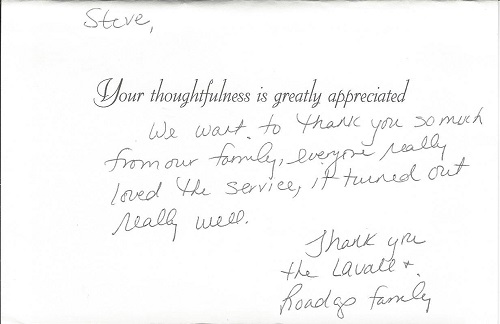 Steve,
Your thoughtfulness is greatly appreciated
We want to thank you so much
from our family, everyone really
loved the service, it turned out
really well.
Thank you
the LaValle +
family